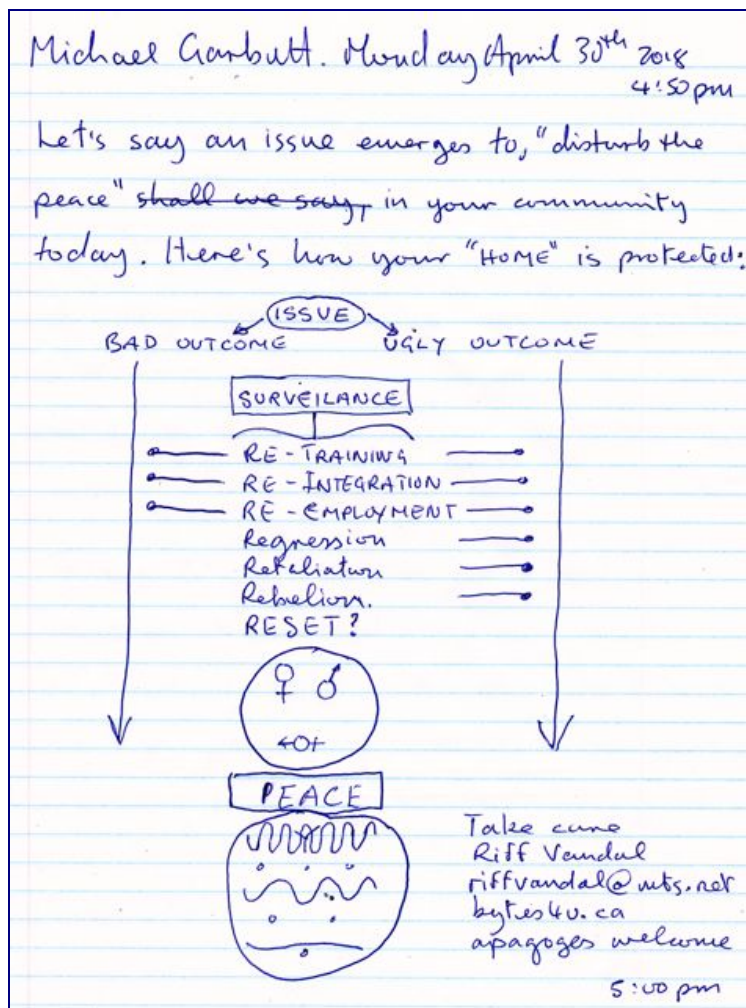 Michael Garbutt. Monday April 30th 2018
4:50pm
Let's say an issue emerges to, "disturb the
peace" shall we say, in your community
today. Here's how your "HOME" is protected:
ISSUE
BAD OUTCOME UGLY OUTCOME
SURVEILANCE
RE-TRAINING
RE-INTEGRATION
RE-EMPLOYMENT
Regression
Retaliation
Rebelion.
RESET?
PEACE
Take care
Riff Vandal
riffvandal@mts.net
bytes4u.ca
apagoges welcome
5:00 pm